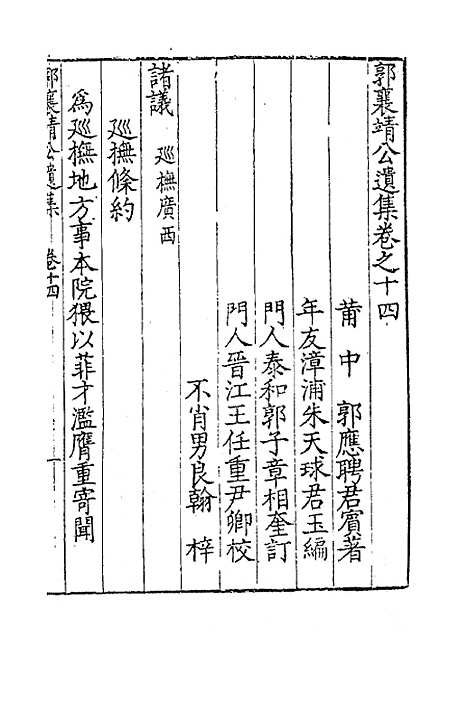 郭襄靖公遺集卷之十四
莆中 郭應聘君賓著
年友漳浦朱天球君玉編
門人泰和郭子章相奎訂
門人晉江王任重尹卿校
不肖男良翰 梓
諸議 廵撫廣西
廵撫條約
爲廵撫地方事本院猥以菲才濫膺重寄聞
郭襄靖公遺集 卷十四